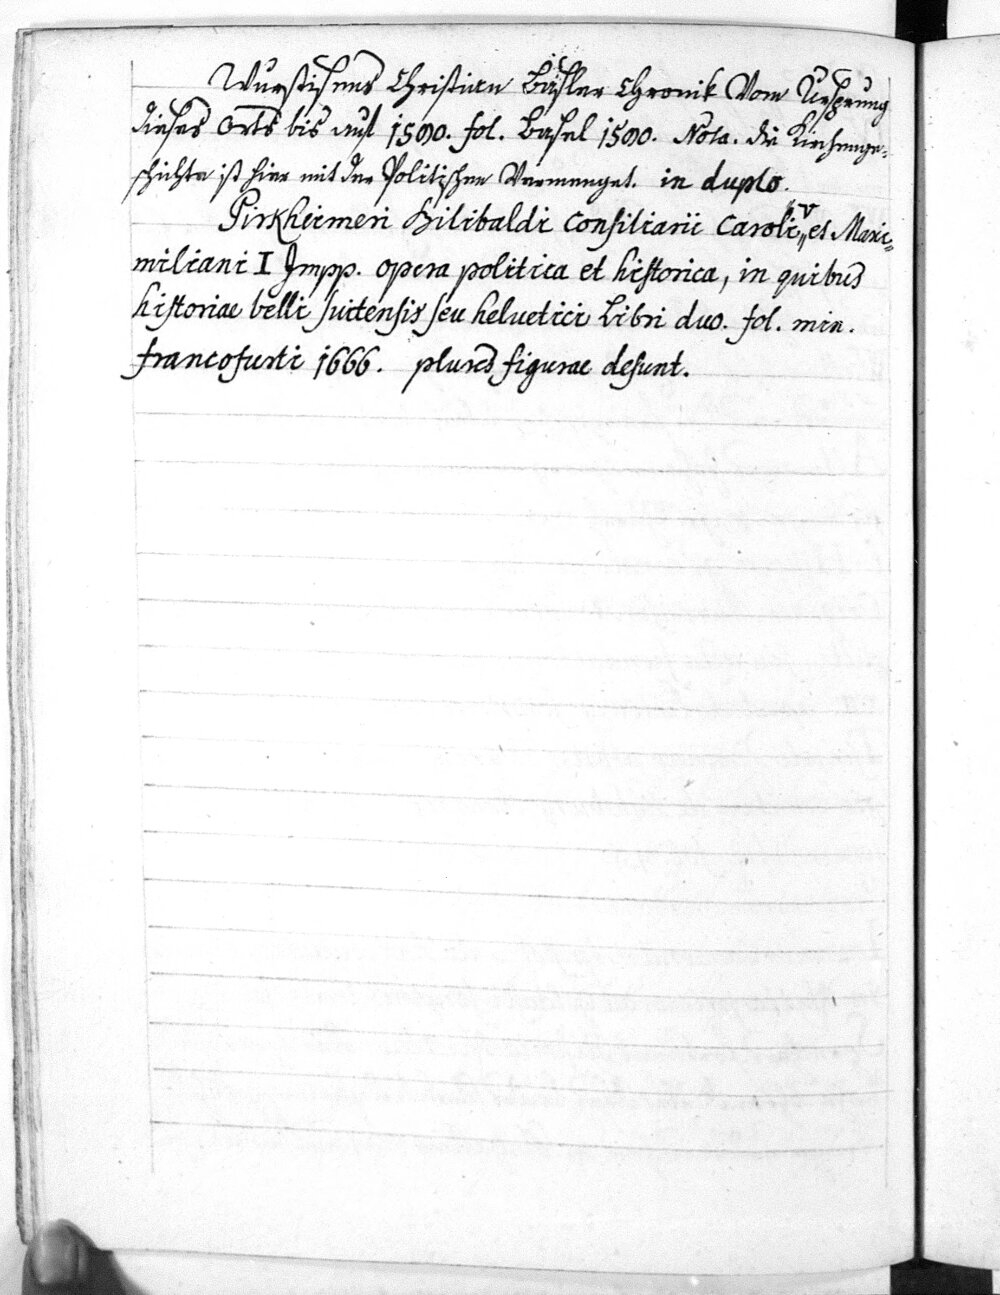 Wurstisens Christian Basler Chronik Vom Ursprung
dieses Orts bis aufs 1580. fol. Basel 1580. Nota. die Kirchenge-
schichte ist hier mit der Politischen Vermenget. in duplo.
Pirkheimeri Bilibaldi Consiliarii Caroli V et Maxi-
miliani I Impp. opera politica et historica, in quibus
historiae belli suitensis seu helvetici Libri duo. fol. min.
francofurti 1666. plures figurae desunt.